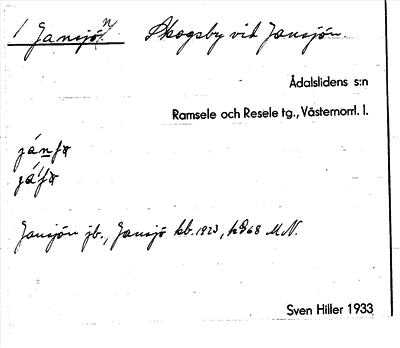 1 Jansjön Skogsby vid Jansjön.
Ådalslidens s:n
Ramsele och Resele tg., Västernorrl. l.
Jansjön jb., Jansjö kb. 1923, M.N.
Sven Hiller 1933